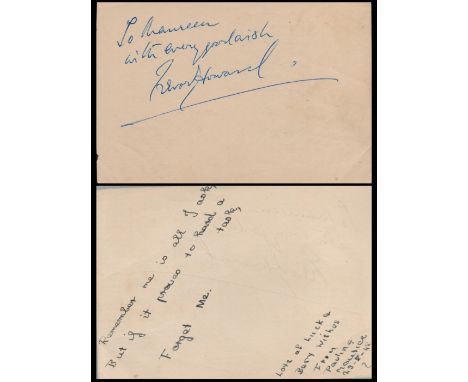 To Maureen
with every good wish
Trevor Howard.
Remember me is all I ask,
But if it proves to hard a
task,
Forget Me.
Lots of Luck &
Best Wishes
From
Pauline